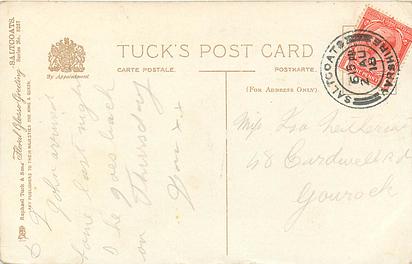 SALTCOATS.
Floral Gloss Greeting
Series No. 8257
Raphael Tuck & Sons
ART PUBLISHERS TO THEIR MAJESTIES THE KING & QUEEN.
By Appointment
TUCK'S POST CARD
CARTE POSTALE. POSTKARTE.
(FOR ADDRESS ONLY).
SALTCOATS
AYRSHIRE
6.15 PM
18
John arrived
home last night
he goes back
on Thursday
Miss
48 Cardwell Rd
Gourock